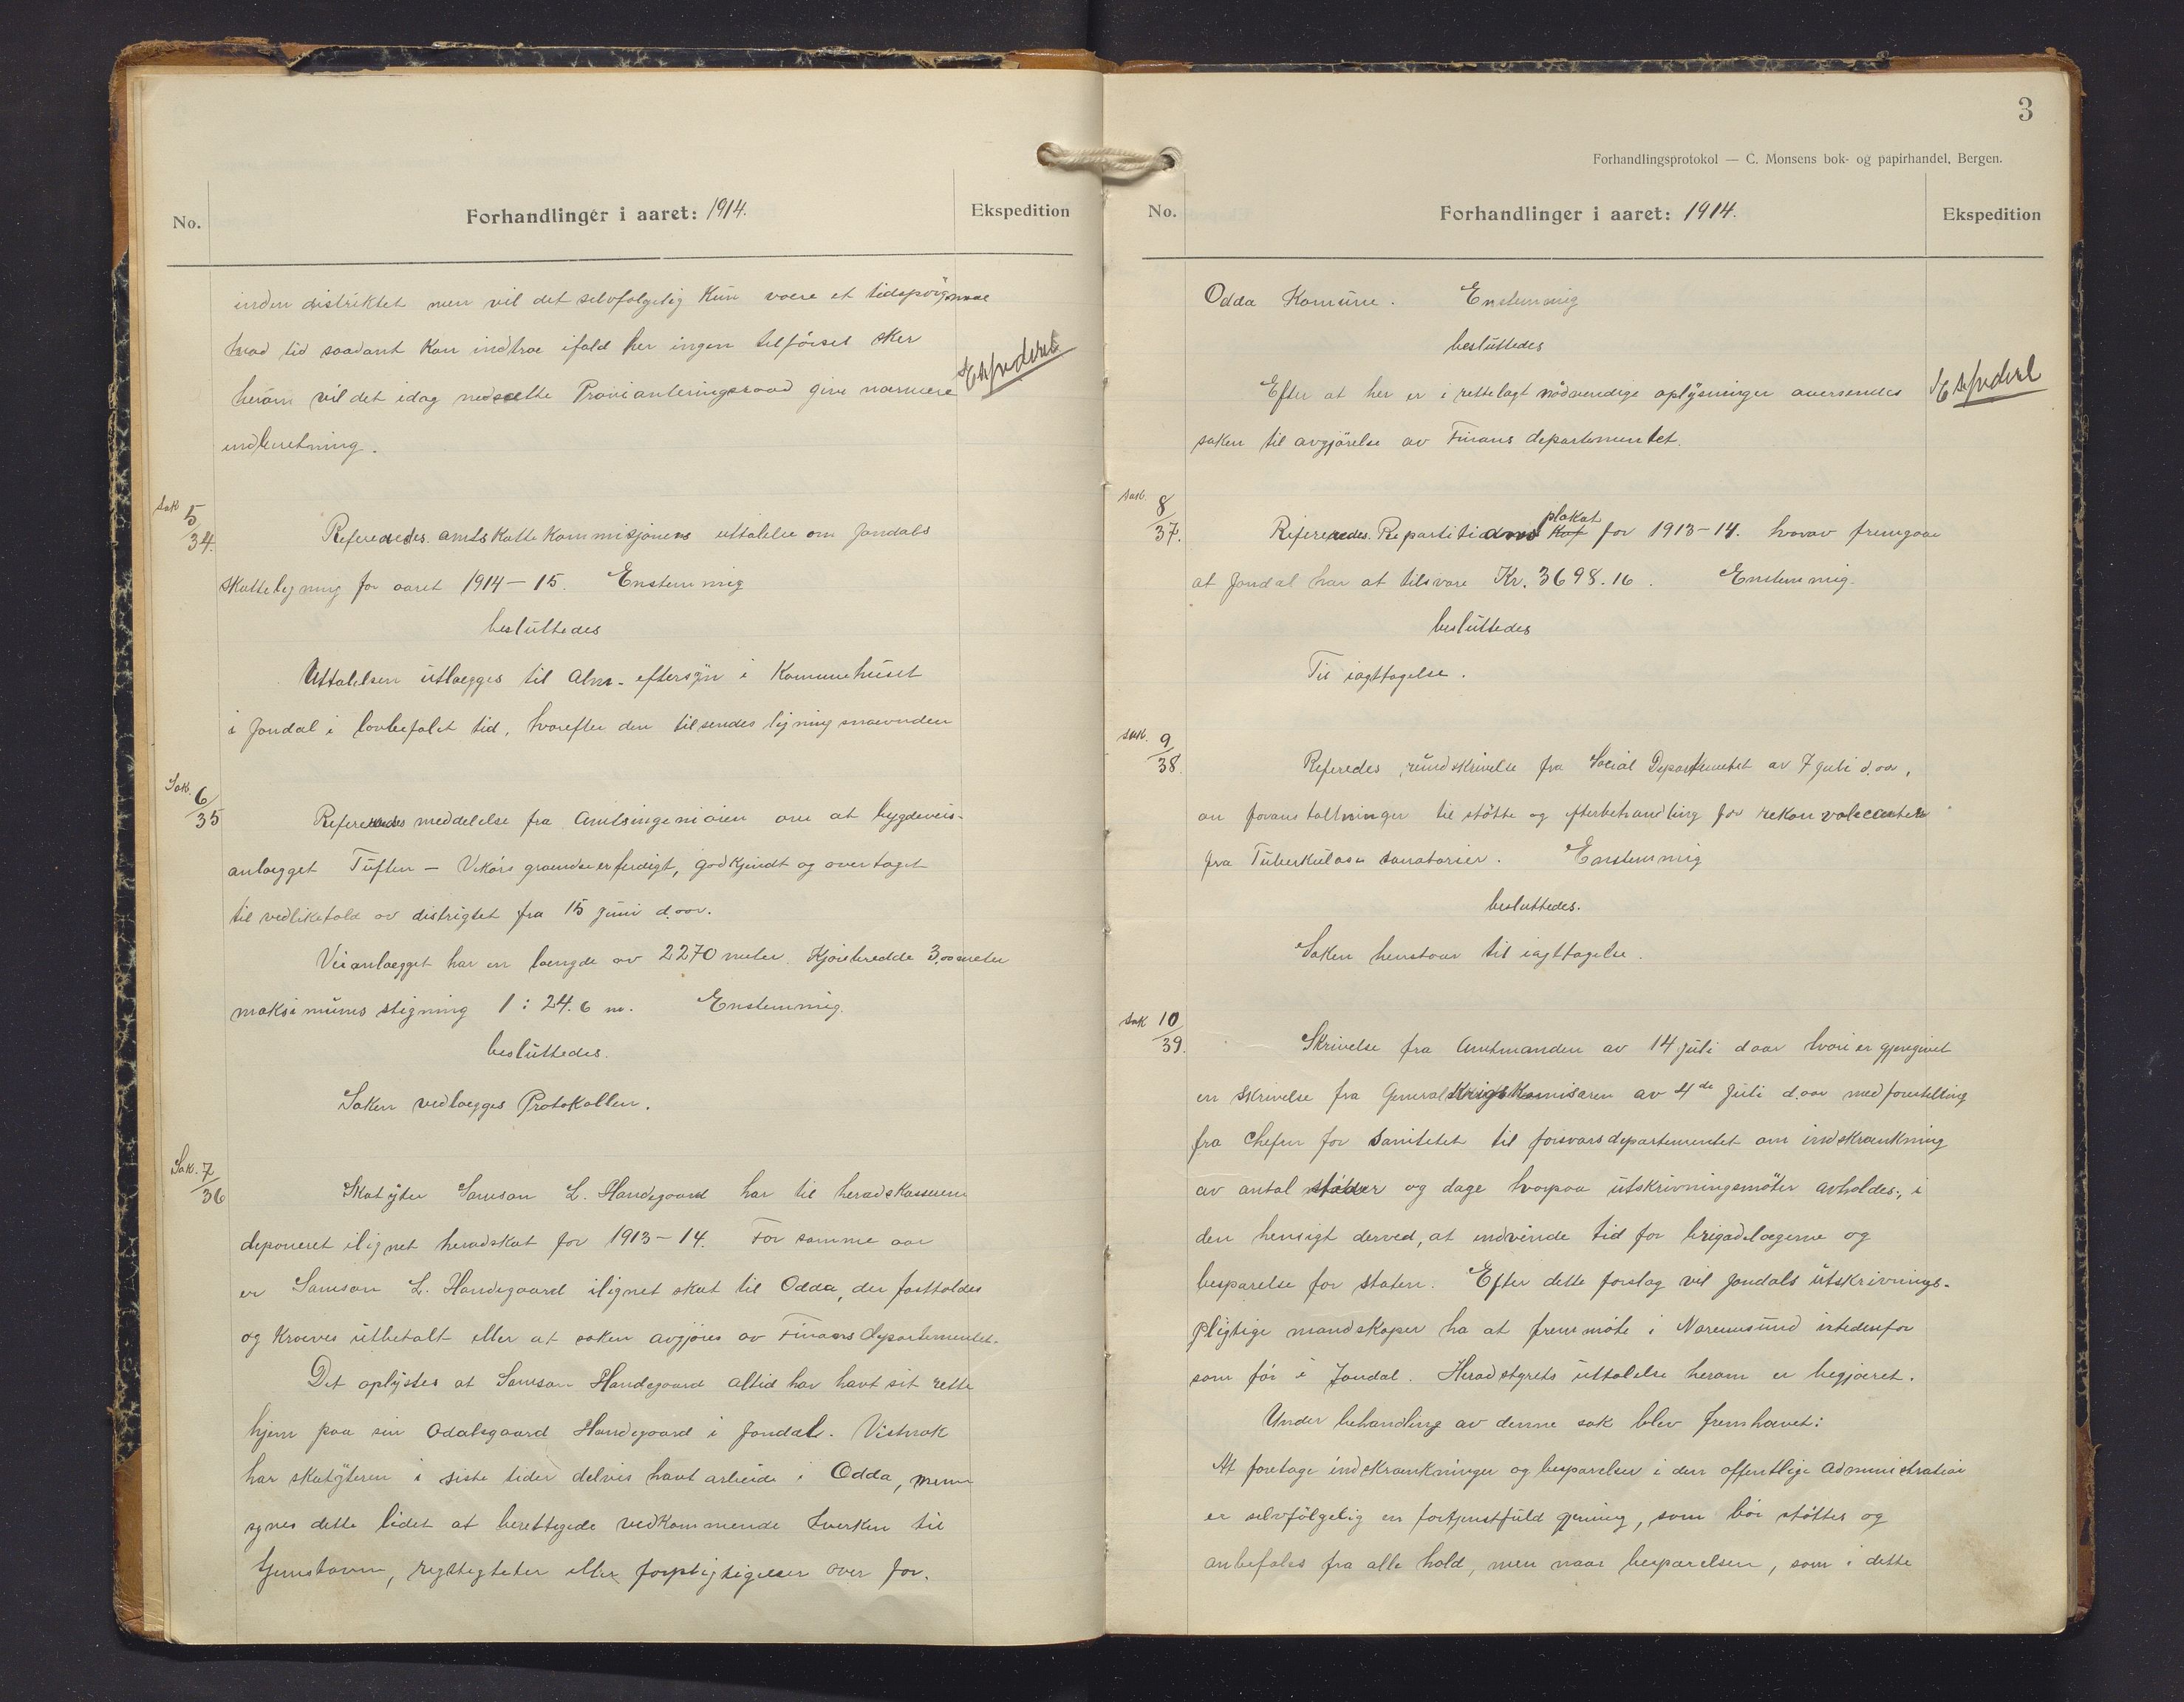 No.
Forhandlinger i aaret: 1914.
Ekspedition
inden distriktet men vil det selvfølgelig kun være et tidspørsmaal
hvad tid saadant kan indtræ ifald her ingen tilførsel sker
herom vil det idag nedsætte Provianteringsraad give nærmere
indberetning.
Ekspederet
Sak 5/34.
Refereredes amtsskattekommisjonens uttalelse om Jondals
skatteligning for aaret 1914–15. Enstemmig
besluttedes
Uttalelsen utlægges til alm. eftersyn i Kommunehuset
i Jondal i lovbefalet tid, hvorefter den tilsendes ligningsnævnden
Sak. 6/35
Refereredes meddelelse fra Amtsingeniøren om at bygdeveis-
anlægget Tuften – Vikørs grændse er ferdigt, godkjendt og overtaget
til vedlikehold av distrigtet fra 15 juni d.aar.
Veianlægget har en længde av 2270 meter. Kjørebredde 3,00 meter
maksimums stigning 1 : 24.6 m. Enstemmig.
besluttedes.
Saken vedlægges Protokollen.
Sak. 7/36
Skatyter Samson L. Handegaard har til heradskassereren
deponeret ilignet heradskat for 1913–14. For samme aar
er Samson L. Handegaard ilignet skat til Odda, der fastholdes
og kræves utbetalt eller at saken avgjøres av Finansdepartementet.
Det oplystes at Samson Handegaard altid har havt sit rette
hjem paa sin Odalsgaard Handegaard i Jondal. Vistnok
har skatyteren i siste tider delvis havt arbeide i Odda, men
synes dette lidet at berettigede vedkommende hverken til
hjemstavn, rigtigheter eller forpligtigelser over for.
3
Forhandlingsprotokol — C. Monsens bok- og papirhandel, Bergen.
No.
Forhandlinger i aaret: 1914.
Ekspedition
Odda Komune. Enstemmig
besluttedes
Efter at her er i rettelagt nødvendige oplysninger oversendes
saken til avgjørelse av Finans departementet.
Ekspederet
Sak. 8/37.
Refereredes Repartitions plakat for 1913–14. hvorav fremgaar
at Jondal har at tilsvare Kr. 3698.16. Enstemmig.
besluttedes
Til iagttagelse.
Sak. 9/38.
Referedes rundskrivelse fra Social Departementet av 7 juli d.aar,
om foranstaltninger til støtte og efterbehandling for rekonvalecenter
fra Tuberkulose sanatorier. Enstemmig
besluttedes.
Saken henstaar til iagttagelse.
Sak 10/39.
Skrivelse fra Amtmanden av 14 juli d aar hvori er gjengivet
en skrivelse fra Generalkrigskomisæren av 4de Juli d.aar med forestilling
fra Chefen for Sanitetet til forsvarsdepartementet om indskrænkning
av antal steder og dage hvorpaa utskrivningsmøter avholdes, i
den hensigt derved, at indvinde tid for brigadelægerne og
besparelse for staten. Efter dette forslag vil Jondals utskrivnings-
pligtige mandskaper ha at fremmøte i Noreimsund istedenfor
som før i Jondal. Heradstyrets uttalelse herom er begjæret.
Under behandling av denne sak blev fremhævet:
At foretage indskrænkninger og besparelser i den offentlige administration
er selvfølgelig en fortjenstfuld gjerning, som bør støttes og
anbefales fra alle hold, men naar besparelsen, som i dette